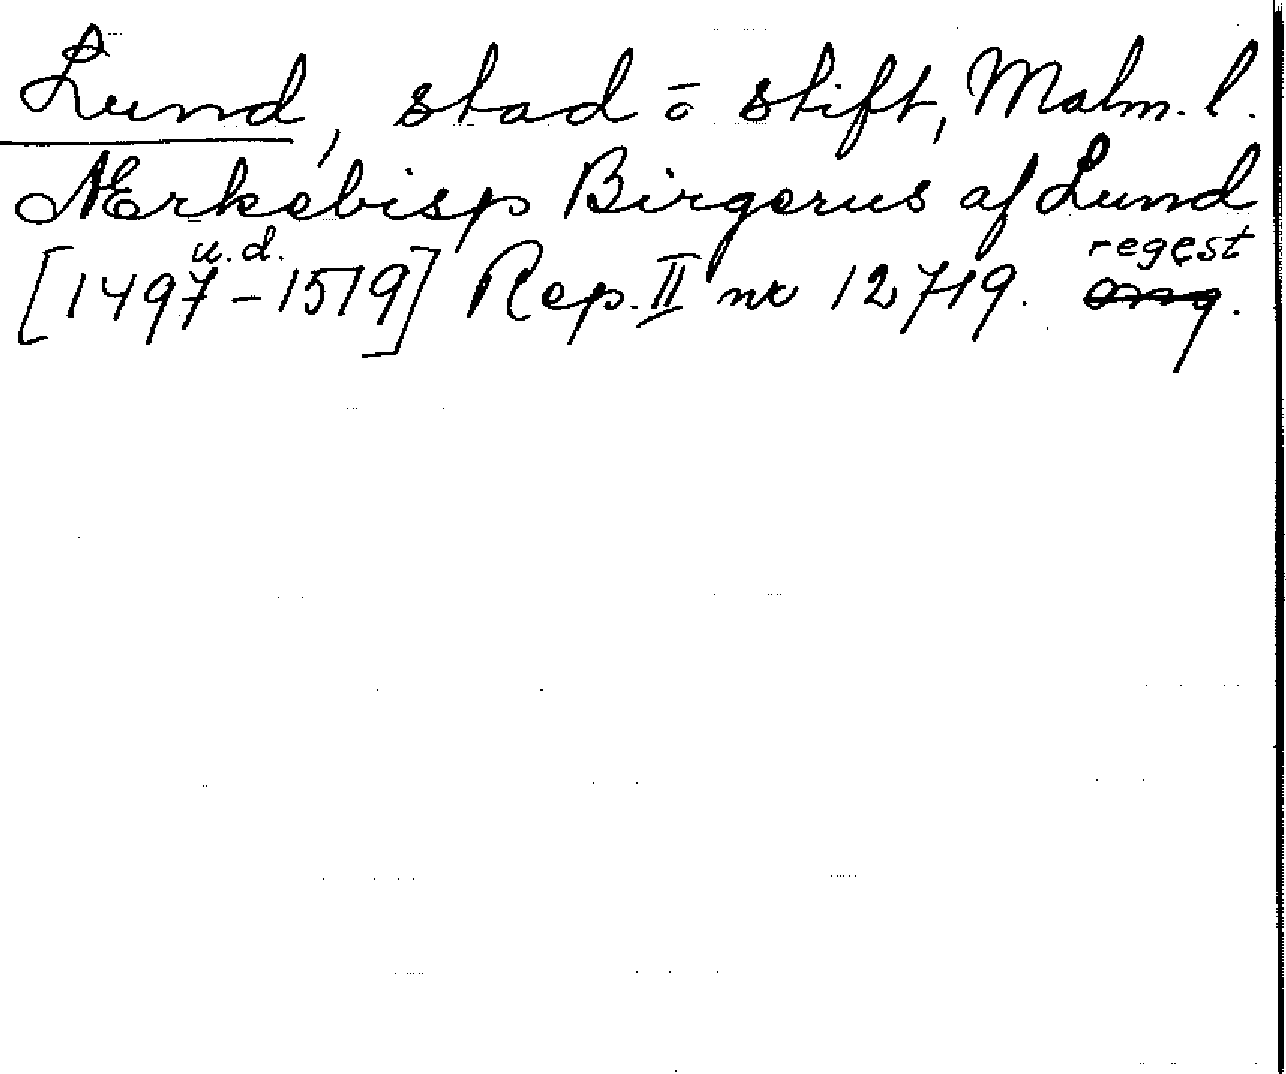 Lund, stad o stift, Malm. l.
Ærkebisp Birgerus af Lund
u.d. regest
[1497–1519] Rep. II nr 12719.